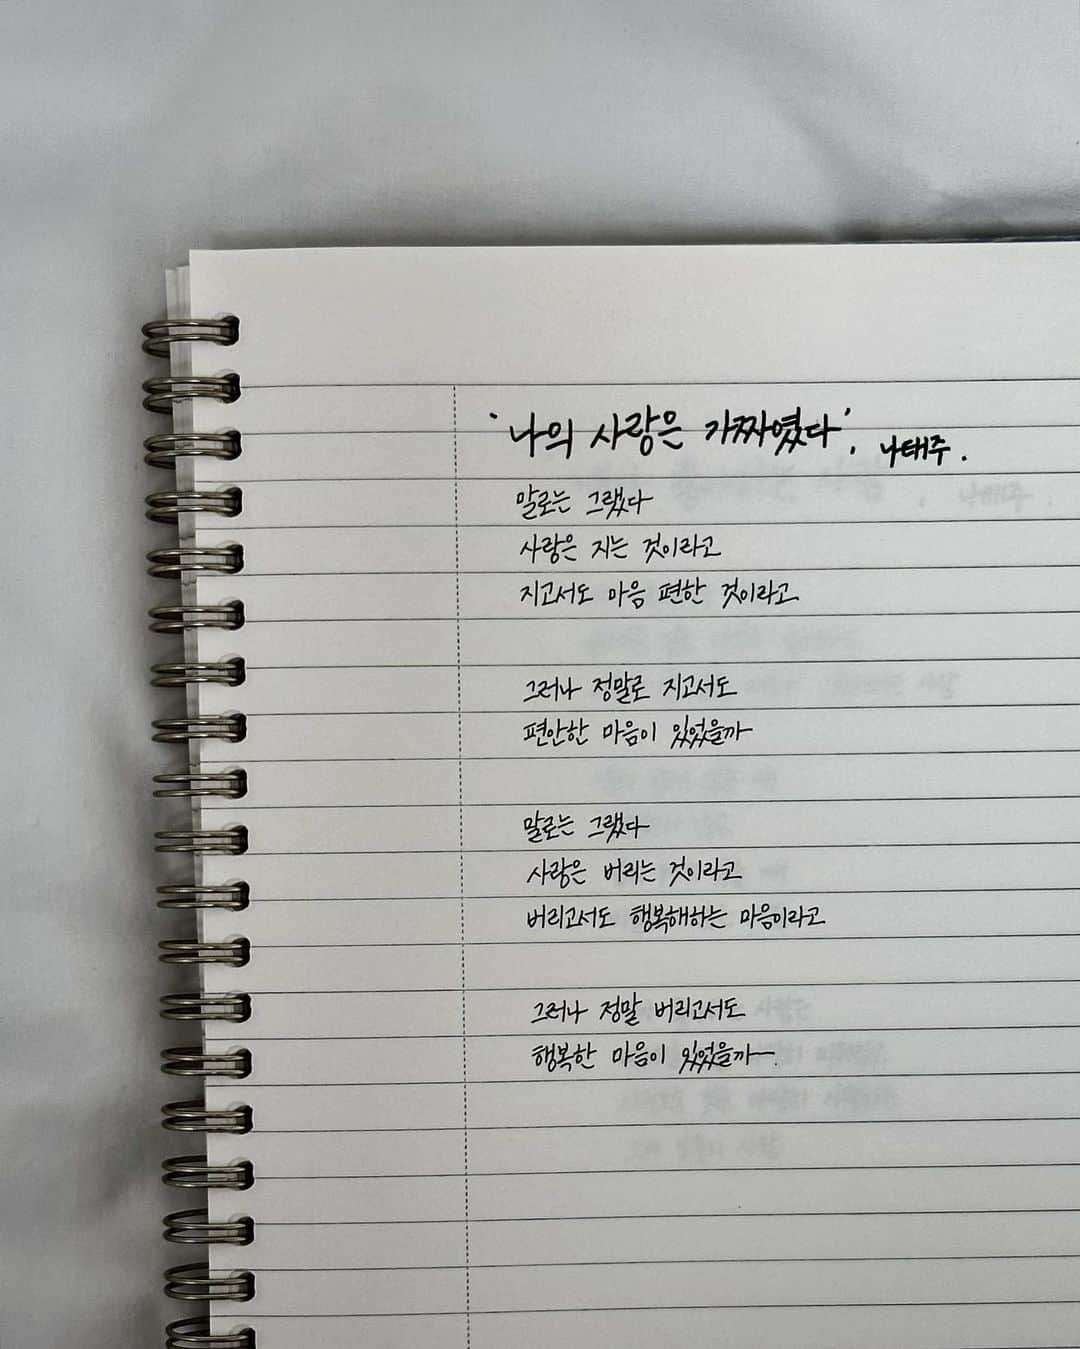 '나의 사랑은 가짜였다', 나태주.
말로는 그랬다
사랑은 지는 것이라고
지고서도 마음 편한 것이라고
그러나 정말로 지고서도
편안한 마음이 있었을까
말로는 그랬다
사랑은 버리는 것이라고
버리고서도 행복해하는 마음이라고
그러나 정말 버리고서도
행복한 마음이 있었을까.